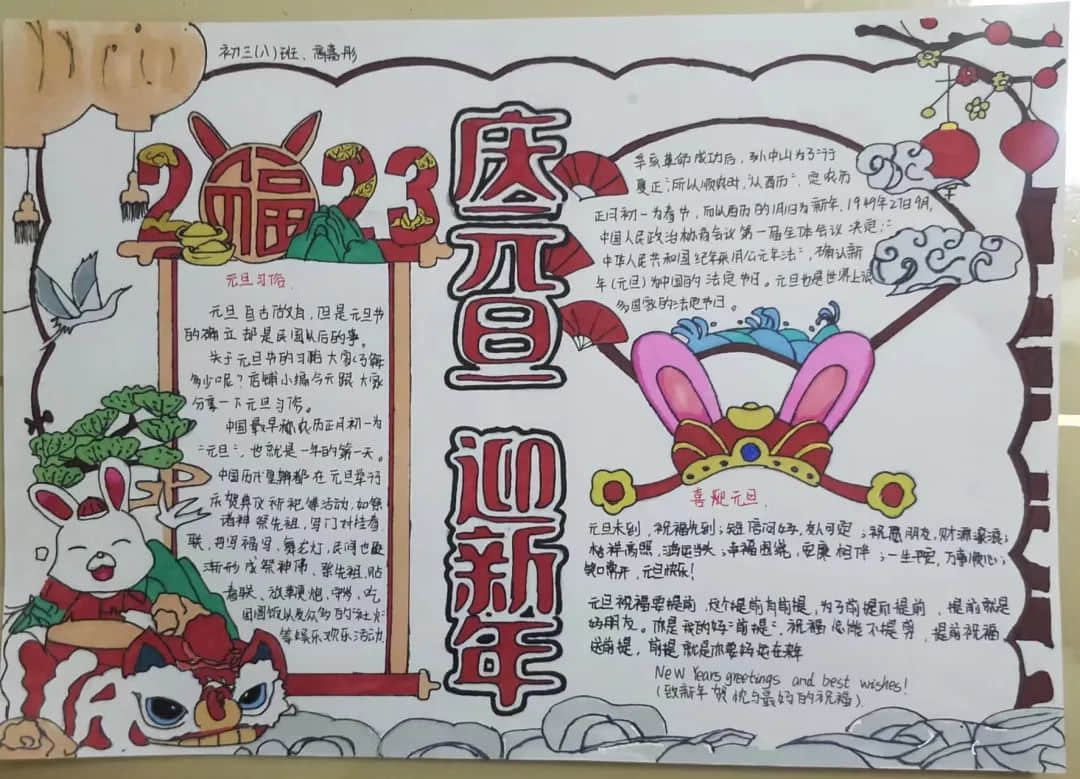 初三(八)班、高嘉彤
2023
福
庆元旦
迎新年
元旦习俗
元旦 自古
但是元旦节
的确立都是民国以后的事。
关于元旦节的习俗大家了解
多少呢？店铺小编今天跟大家
分享一下元旦习俗。
中国最早称农历正月初一为
"元旦"，也就是一年的第一天。
中国历代皇朝都在元旦举行
庆贺典仪祈祀等活动，如祭
诸神祭先祖，写门对挂春
联，书写福字、舞龙灯，民间也逐
渐形成祭神佛、祭先祖，贴
春联、放鞭炮、守岁、吃
团圆饭以及众多的社火
等娱乐欢乐活动
辛亥革命成功后，孙中山为了"行
夏正，所以顺农时，从西历"，定农历
正月初一为春节，而以西历的1月1日为新年，1949年27日9月，
中国人民政治协商会议第一届全体会议决定：
中华人民共和国纪年采用公元年法"，确认新
年(元旦)为中国的法定节日。元旦也是世界上很
多国家的法定节日。
喜迎元旦
元旦未到，祝福先到；短信问好，
；祝愿朋友，财源滚滚；
吉祥高照，
；幸福围绕，安康相伴；一生平安，万事顺心；
笑口常开，元旦快乐！
元旦祝福要提前，这个提前有前提，为了前提前提前，提前就是
好朋友。你是我的好"前提"，祝福
不提前，提前祝福
送前提，前提就是你要
New Years greetings and best wishes!
(致新年贺忱与最好的祝福)